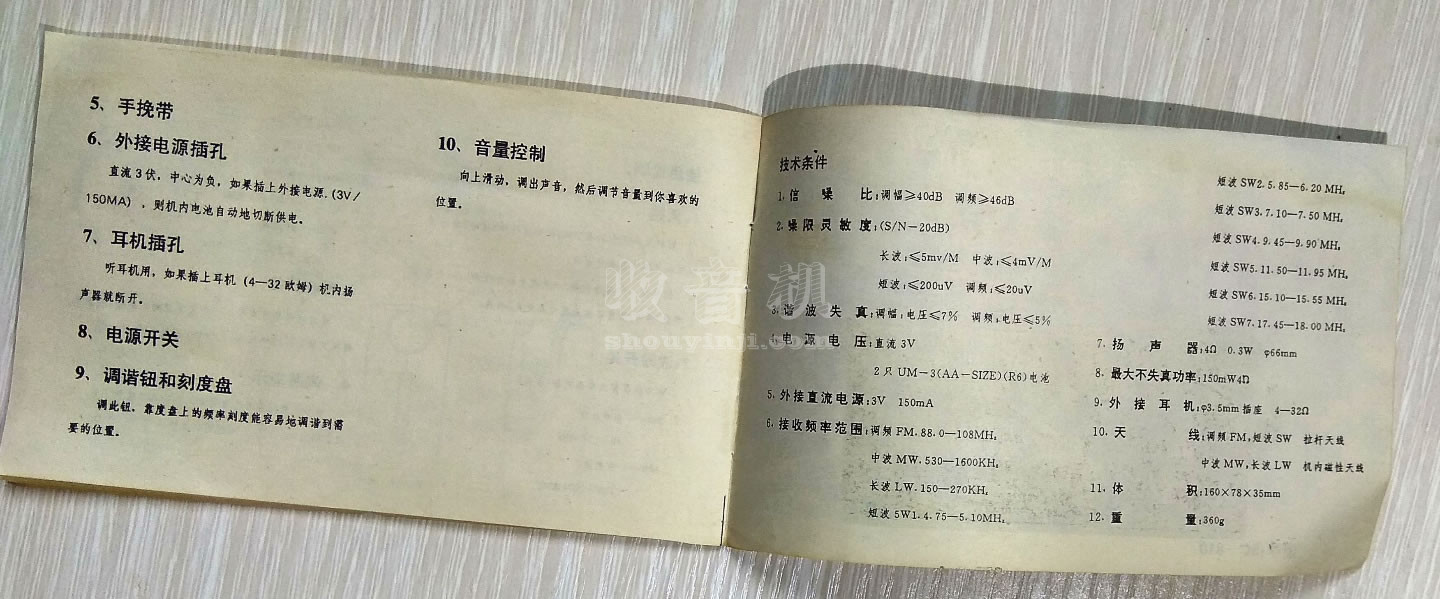 5、手挽带
6、外接电源插孔
直流3伏，中心为负，如果插上外接电源.(3V/
150MA)，则机内电池自动地切断供电。
7、耳机插孔
听耳机用，如果插上耳机（4—32欧姆）机内扬
声器就断开。
8、电源开关
9、调谐钮和刻度盘
调此钮、靠度盘上的频率刻度能容易地调谐到需
要的位置。
10、音量控制
向上滑动，调出声音，然后调节音量到你喜欢的
位置。
技术条件
1.信噪比:调幅≥40dB 调频≥46dB
2.噪限灵敏度:(S/N－20dB)
长波:≤5mv/M 中波:≤4mV/M
短波:≤200uV 调频:≤20uV
3.谐波失真:调幅:电压≤7% 调频:电压≤5%
4.电源电压:直流3V
2只UM－3(AA－SIZE)(R6)电池
5.外接直流电源:3V 150mA
6.接收频率范围:调频FM.88.0—108MHz
中波MW.530—1600KHz
长波LW.150—270KHz
短波5W1.4.75—5.10MHz
短波SW2.5.85—6.20MHz
短波SW3.7.10—7.50MHz
短波SW4.9.45—9.90MHz
短波SW5.11.50—11.95MHz
短波SW6.15.10—15.55MHz
短波SW7.17.45—18.00MHz
7.扬声器:4Ω 0.3W φ66mm
8.最大不失真功率:150mW4Ω
9.外接耳机:φ3.5mm插座 4—32Ω
10.天线:调频FM,短波SW 拉杆天线
中波MW,长波LW 机内磁性天线
11.体积:160×78×35mm
12.重量:360g
收音机
shouyinji.com